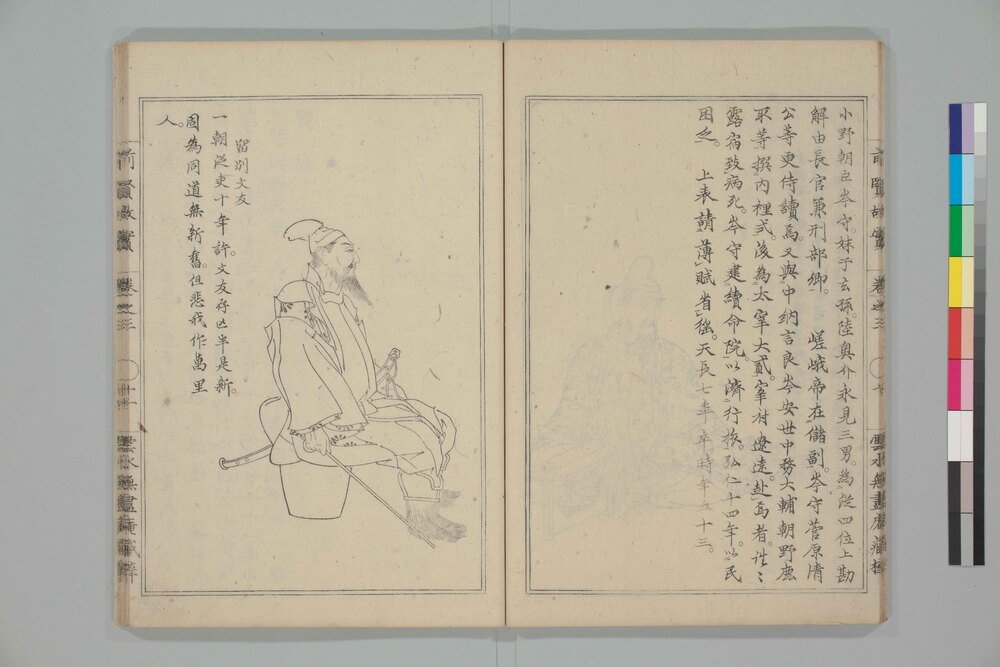 小野朝臣岑守。妹子玄孫。陸奧介永見三男。為從四位上勘
解由長官兼刑部卿。　嵯峨帝在儲副。岑守菅原清
公等更侍讀焉。又與中納言良岑安世中務大輔朝野鹿
取等撰內裡式。後為太宰大貳。宰府遼遠。赴焉者。往々
露宿致病死。岑守建續命院。以濟行旅。弘仁十四年。以民
困乏。　上表請薄賦省徭。天長七年卒。時年五十三。
前賢故實
卷之三
留別文友
一朝從吏十年許。文友存亡半是新。
固為同道無新舊。但悲我作萬里
人。
前賢故實
卷之三